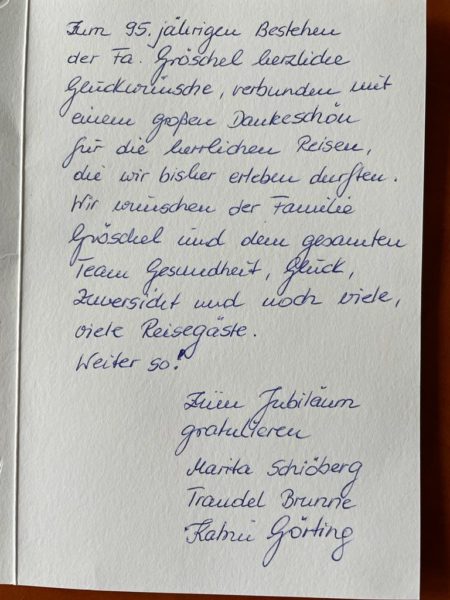 Zum 95. jährigen Bestehen
der Fa. Gröschel herzliche
Glückwünsche, verbunden mit
einem großen Dankeschön
für die herrlichen Reisen,
die wir bisher erleben durften.
Wir wünschen der Familie
Gröschel und dem gesamten
Team Gesundheit, Glück,
Zuversicht und noch viele,
viele Reisegäste.
Weiter so!
Zum Jubiläum
gratulieren
Marita Schiöberg
Traudel Brunne
Görting